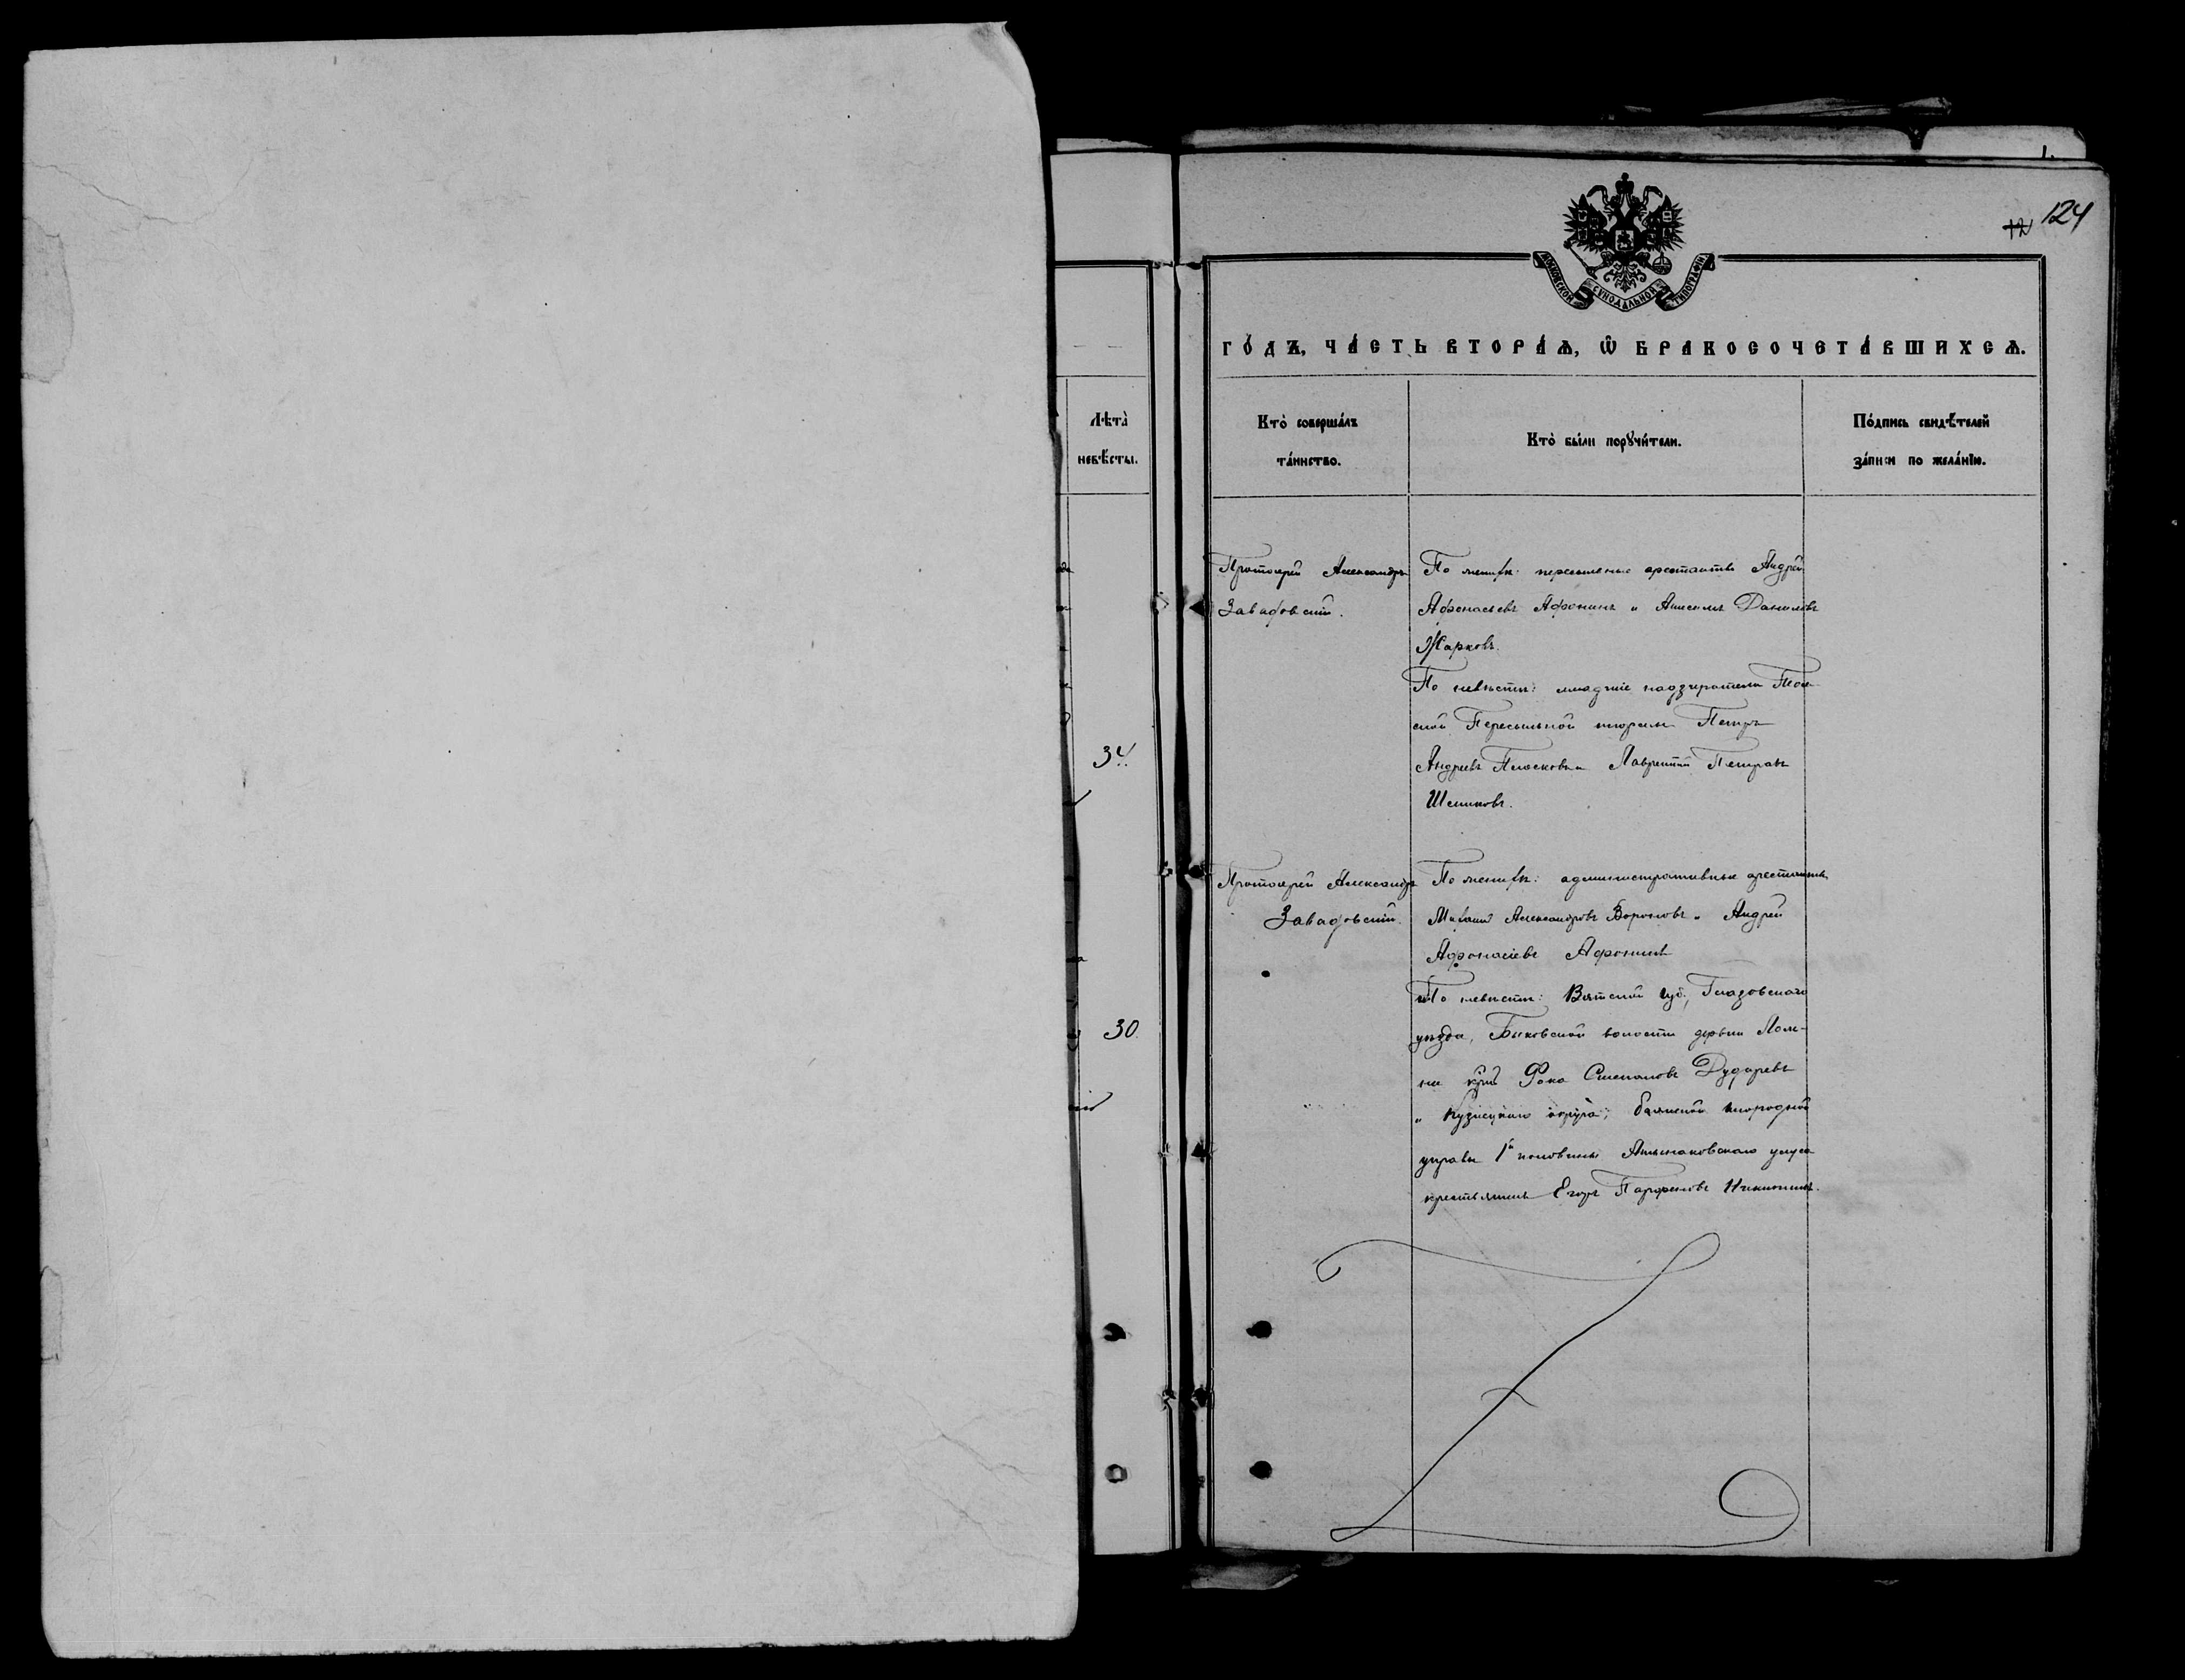 124
МОСКОВСКОЙ СѴНОДАЛЬНОЙ ТИПОГРАФІИ
ГОДЪ, ЧАСТЬ ВТОРАЯ, Ѡ БРАКОСОЧЕТАВШИХСЯ.
Лѣта
невѣсты.
Кто совершалъ
таинство.
Кто были поручители.
Подпись свидѣтелей
записи по желанію.
34.
30.
Протоіерей Александръ
Завадовскій.
По женихѣ: пересыльные арестанты Андрей
Афонасьевъ Афонинъ и Анисимъ Даниловъ
Жарковъ.
По невѣстѣ: младшіе надзиратели Том-
ской Пересыльной тюрьмы Петръ
Андреевъ и Лаврентій Петровъ
Шешуковъ.
Протоіерей Александръ
Завадовскій.
По женихѣ: административные арестанты
Михаилъ Александровъ Вороновъ и Андрей
Афонасіевъ Афонинъ
По невѣстѣ: Вятской губ., Глазовскаго
уѣзда, Быковской волости деревни
Фока Степановъ Дударевъ
и Кузнецкаго округа, инородной
управы 1й половины улуса
крестьянинъ Егоръ Парфеновъ